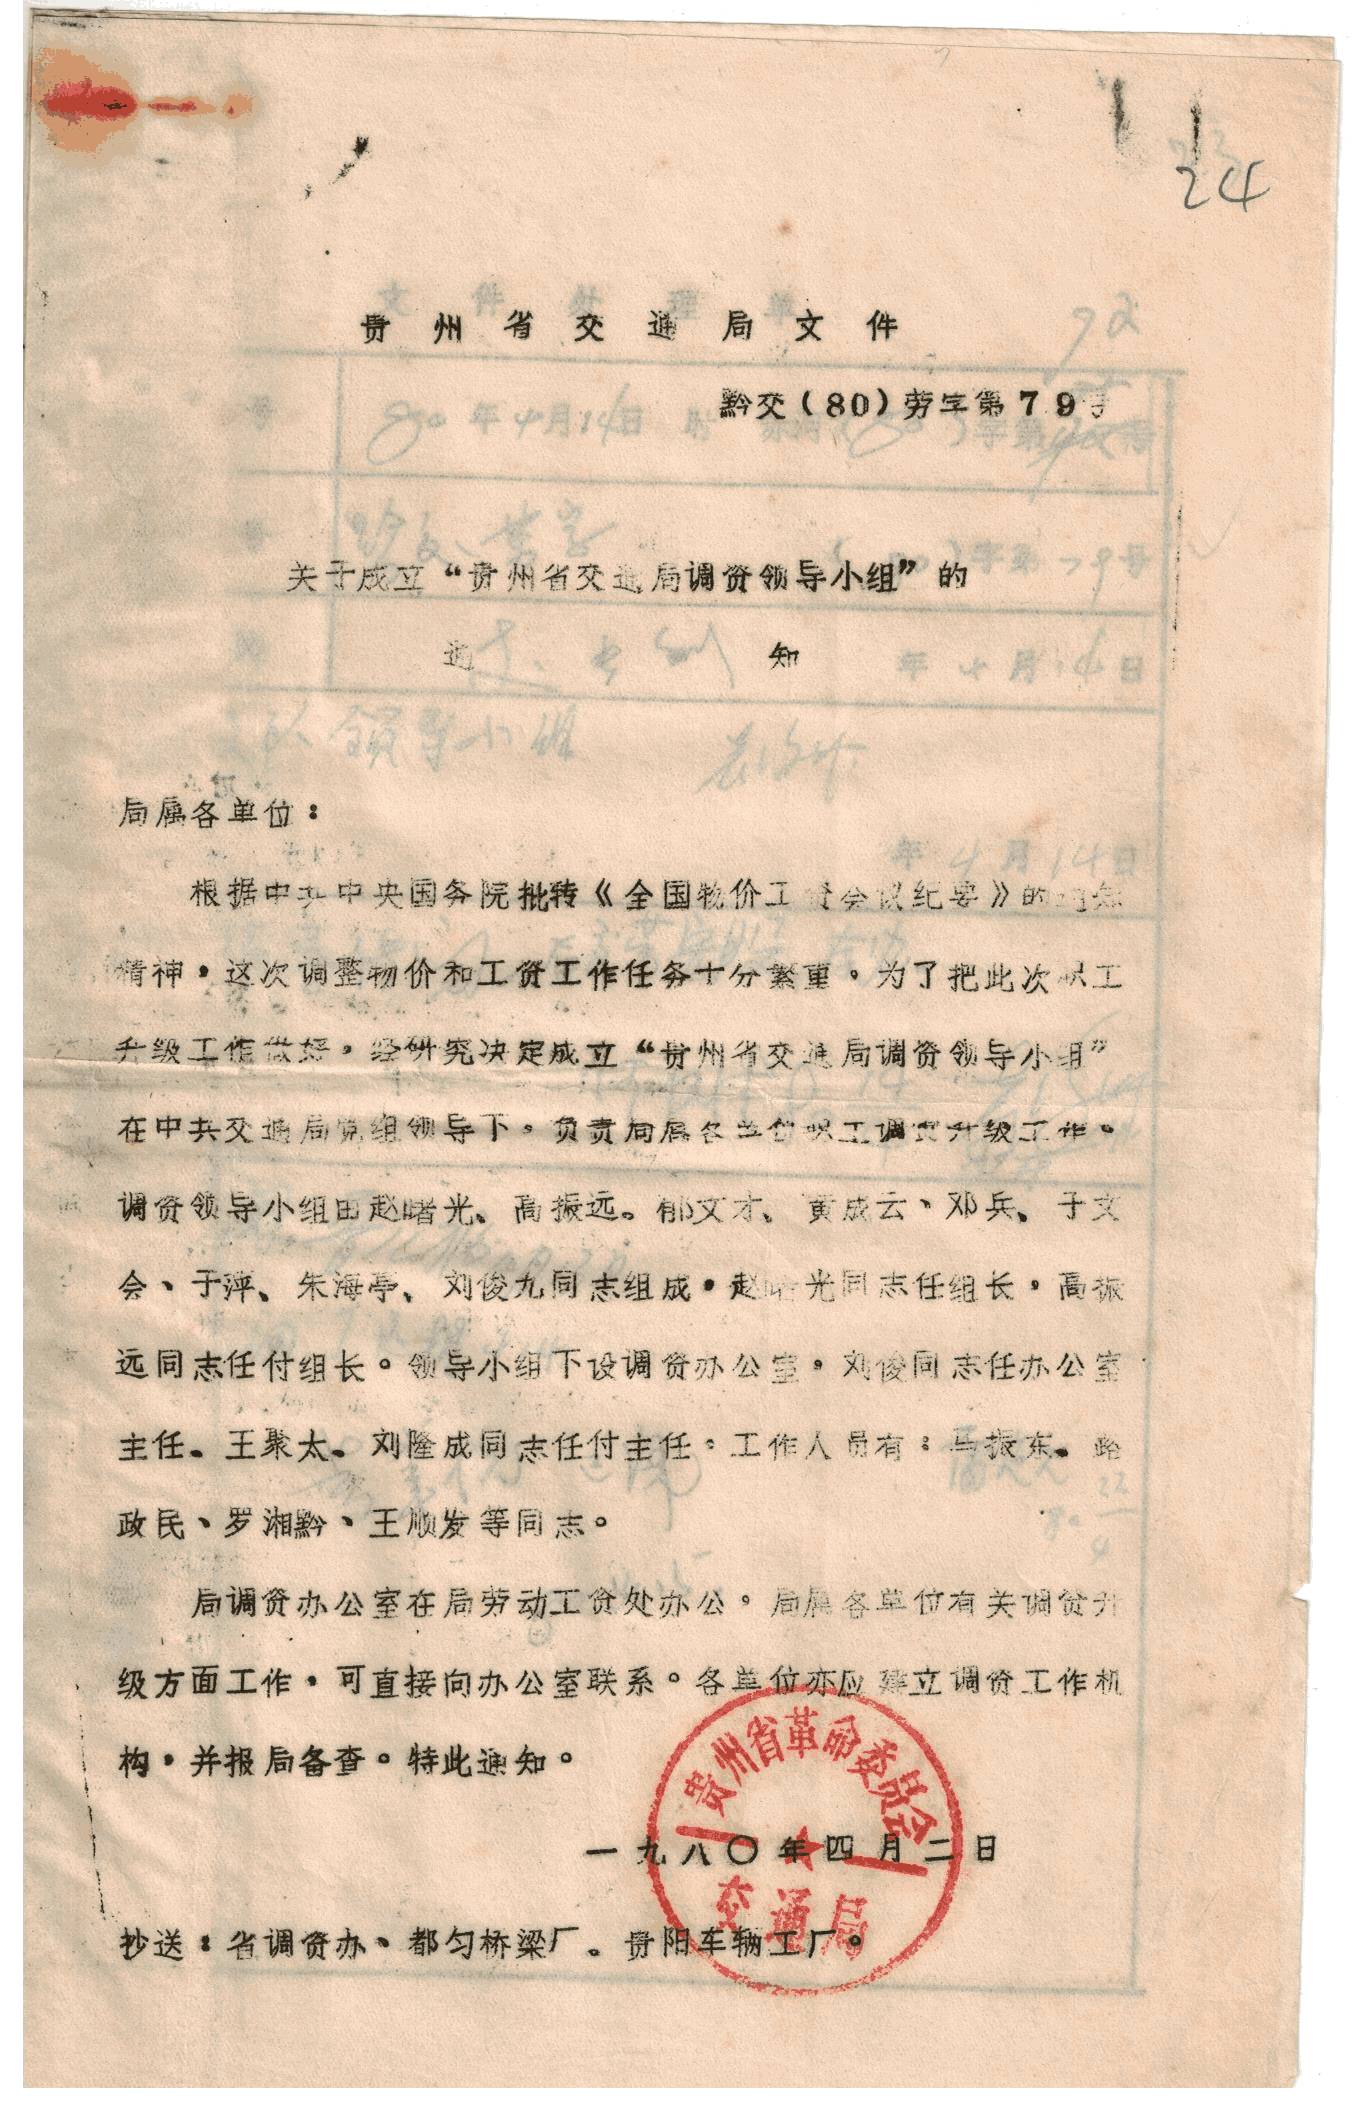 24
贵州省交通局文件
黔交(80)劳字第79号
关于成立“贵州省交通局调资领导小组”的
通知
局属各单位：
根据中共中央国务院批转《全国物价工资会议纪要》的通知
精神，这次调整物价和工资工作任务十分繁重。为了把此次职工
升级工作做好，经研究决定成立“贵州省交通局调资领导小组”
在中共交通局党组领导下，负责局属各单位职工调资升级工作。
调资领导小组由赵曙光、高振远。郁文才、黄成云、邓兵、于文
会、于萍、朱海亭、刘俊九同志组成，赵曙光同志任组长，高振
远同志任付组长。领导小组下设调资办公室，刘俊同志任办公室
主任。王聚太。刘隆成同志任付主任，工作人员有：马振东。路
政民、罗湘黔、王顺发等同志。
局调资办公室在局劳动工资处办公。局属各单位有关调资升
级方面工作，可直接向办公室联系。各单位亦应建立调资工作机
构，并报局备查。特此通知。
贵州省革命委员会
一九八〇年四月二日
交通局
抄送：省调资办、都匀桥梁厂。贵阳车辆工厂。